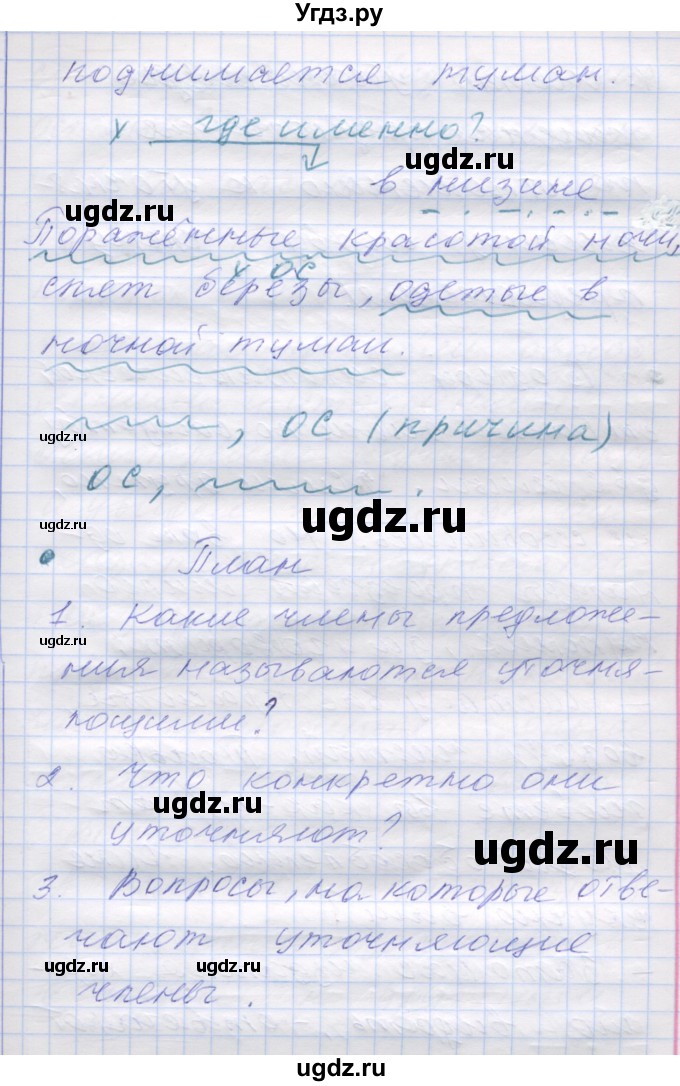 Угдз.ру
поднимается туман.
х где именно?
ugdz.ru
в низине
ugdz.ru
Поражённые красотой ночи,
х ОС
спят берёзы, одетые в
ночной туман.
ugdz.ru
, ОС (причина)
ОС, .
ugdz.ru
ugdz.ru
План
1. Какие члены предложе-
ния называются уточня-
ющими?
2. Что конкретно они
ugdz.ru
уточняют?
ugdz.ru
3. Вопросы, на которые отве-
чают уточняющие
ugdz.ru ugdz.ru
члены.
ugdz.ru